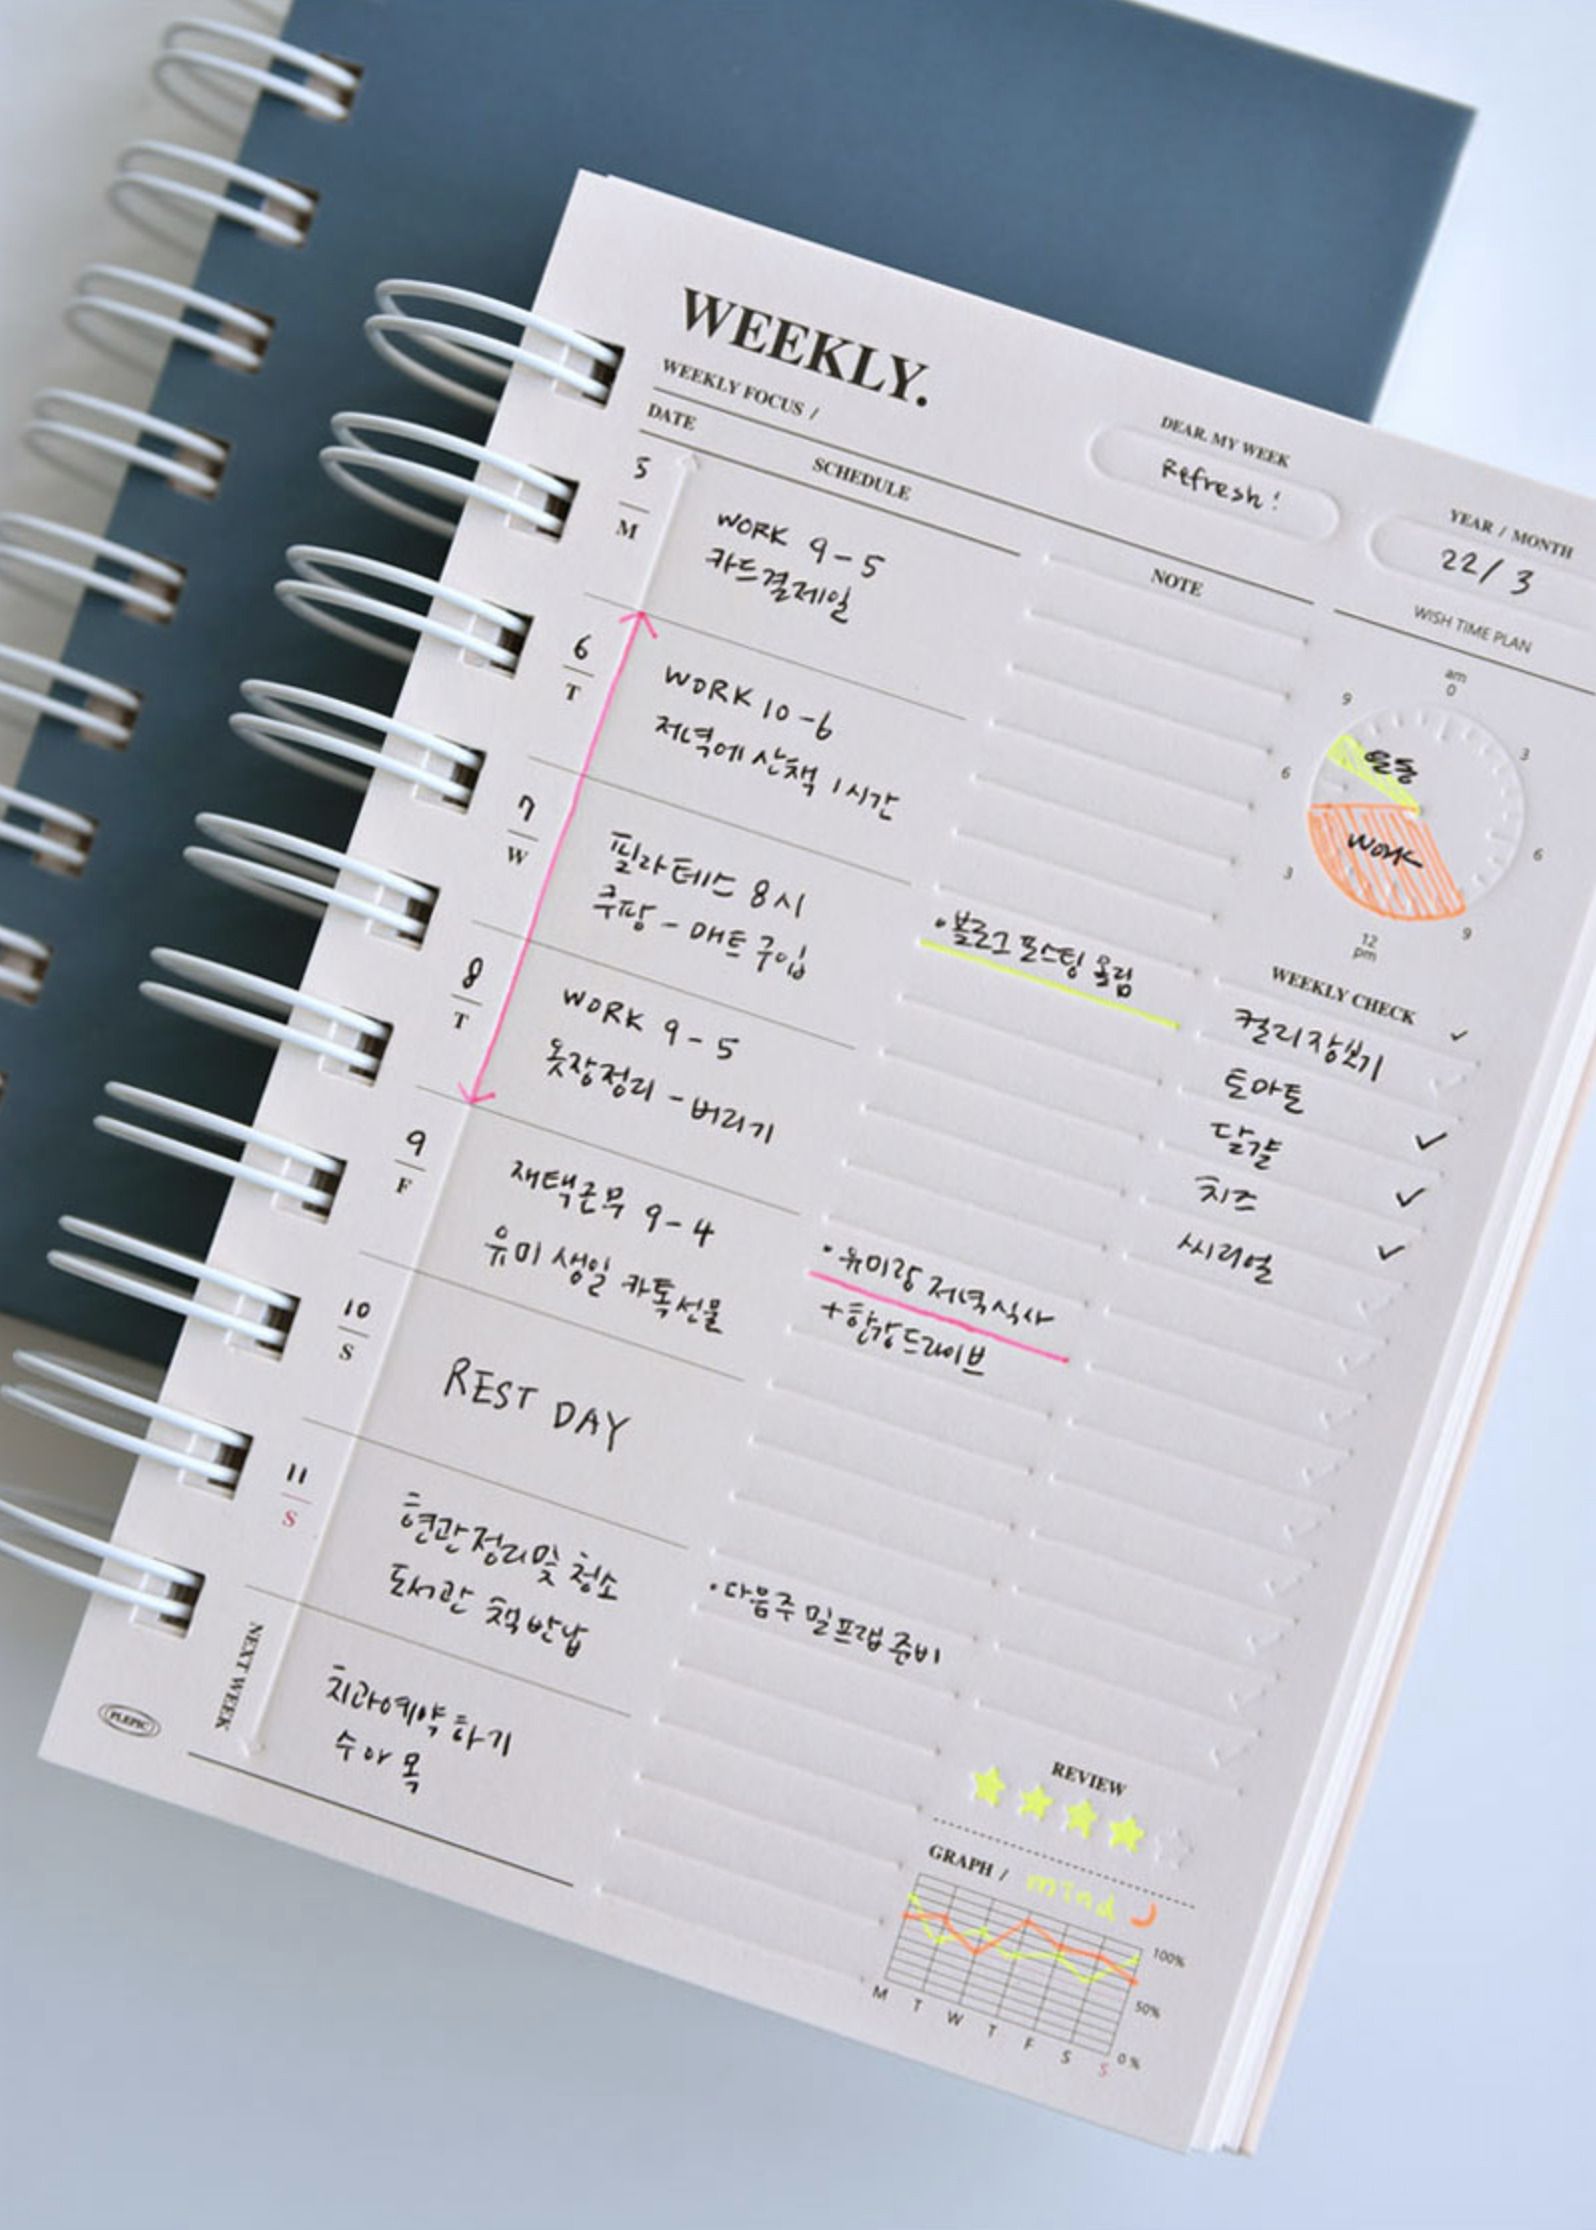 WEEKLY.
WEEKLY FOCUS /
DEAR. MY WEEK
Refresh!
YEAR / MONTH
22/3
DATE
SCHEDULE
NOTE
WISH TIME PLAN
5
M
WORK 9-5
카드결제일
6
T
WORK 10-6
저녁에 산책 1시간
7
W
필라테스 8시
쿠팡 - 매트 구입
8
T
WORK 9-5
옷장정리 - 버리기
9
F
재택근무 9-4
유미 생일 카톡선물
10
S
REST DAY
11
S
현관정리 및 청소
도서관 책 반납
NEXT WEEK
치과예약 하기
수 or 목
PLEPIC
· 블로그 포스팅 올림
· 유미랑 저녁식사
+ 한강드라이브
· 다음주 밀프랩 준비
am
0
3
6
9
12
pm
3
6
9
운동
work
WEEKLY CHECK ✓
컬리장보기
토마토 ✓
달걀 ✓
치즈 ✓
씨리얼
REVIEW
GRAPH / mind
100%
50%
0%
M T W T F S S